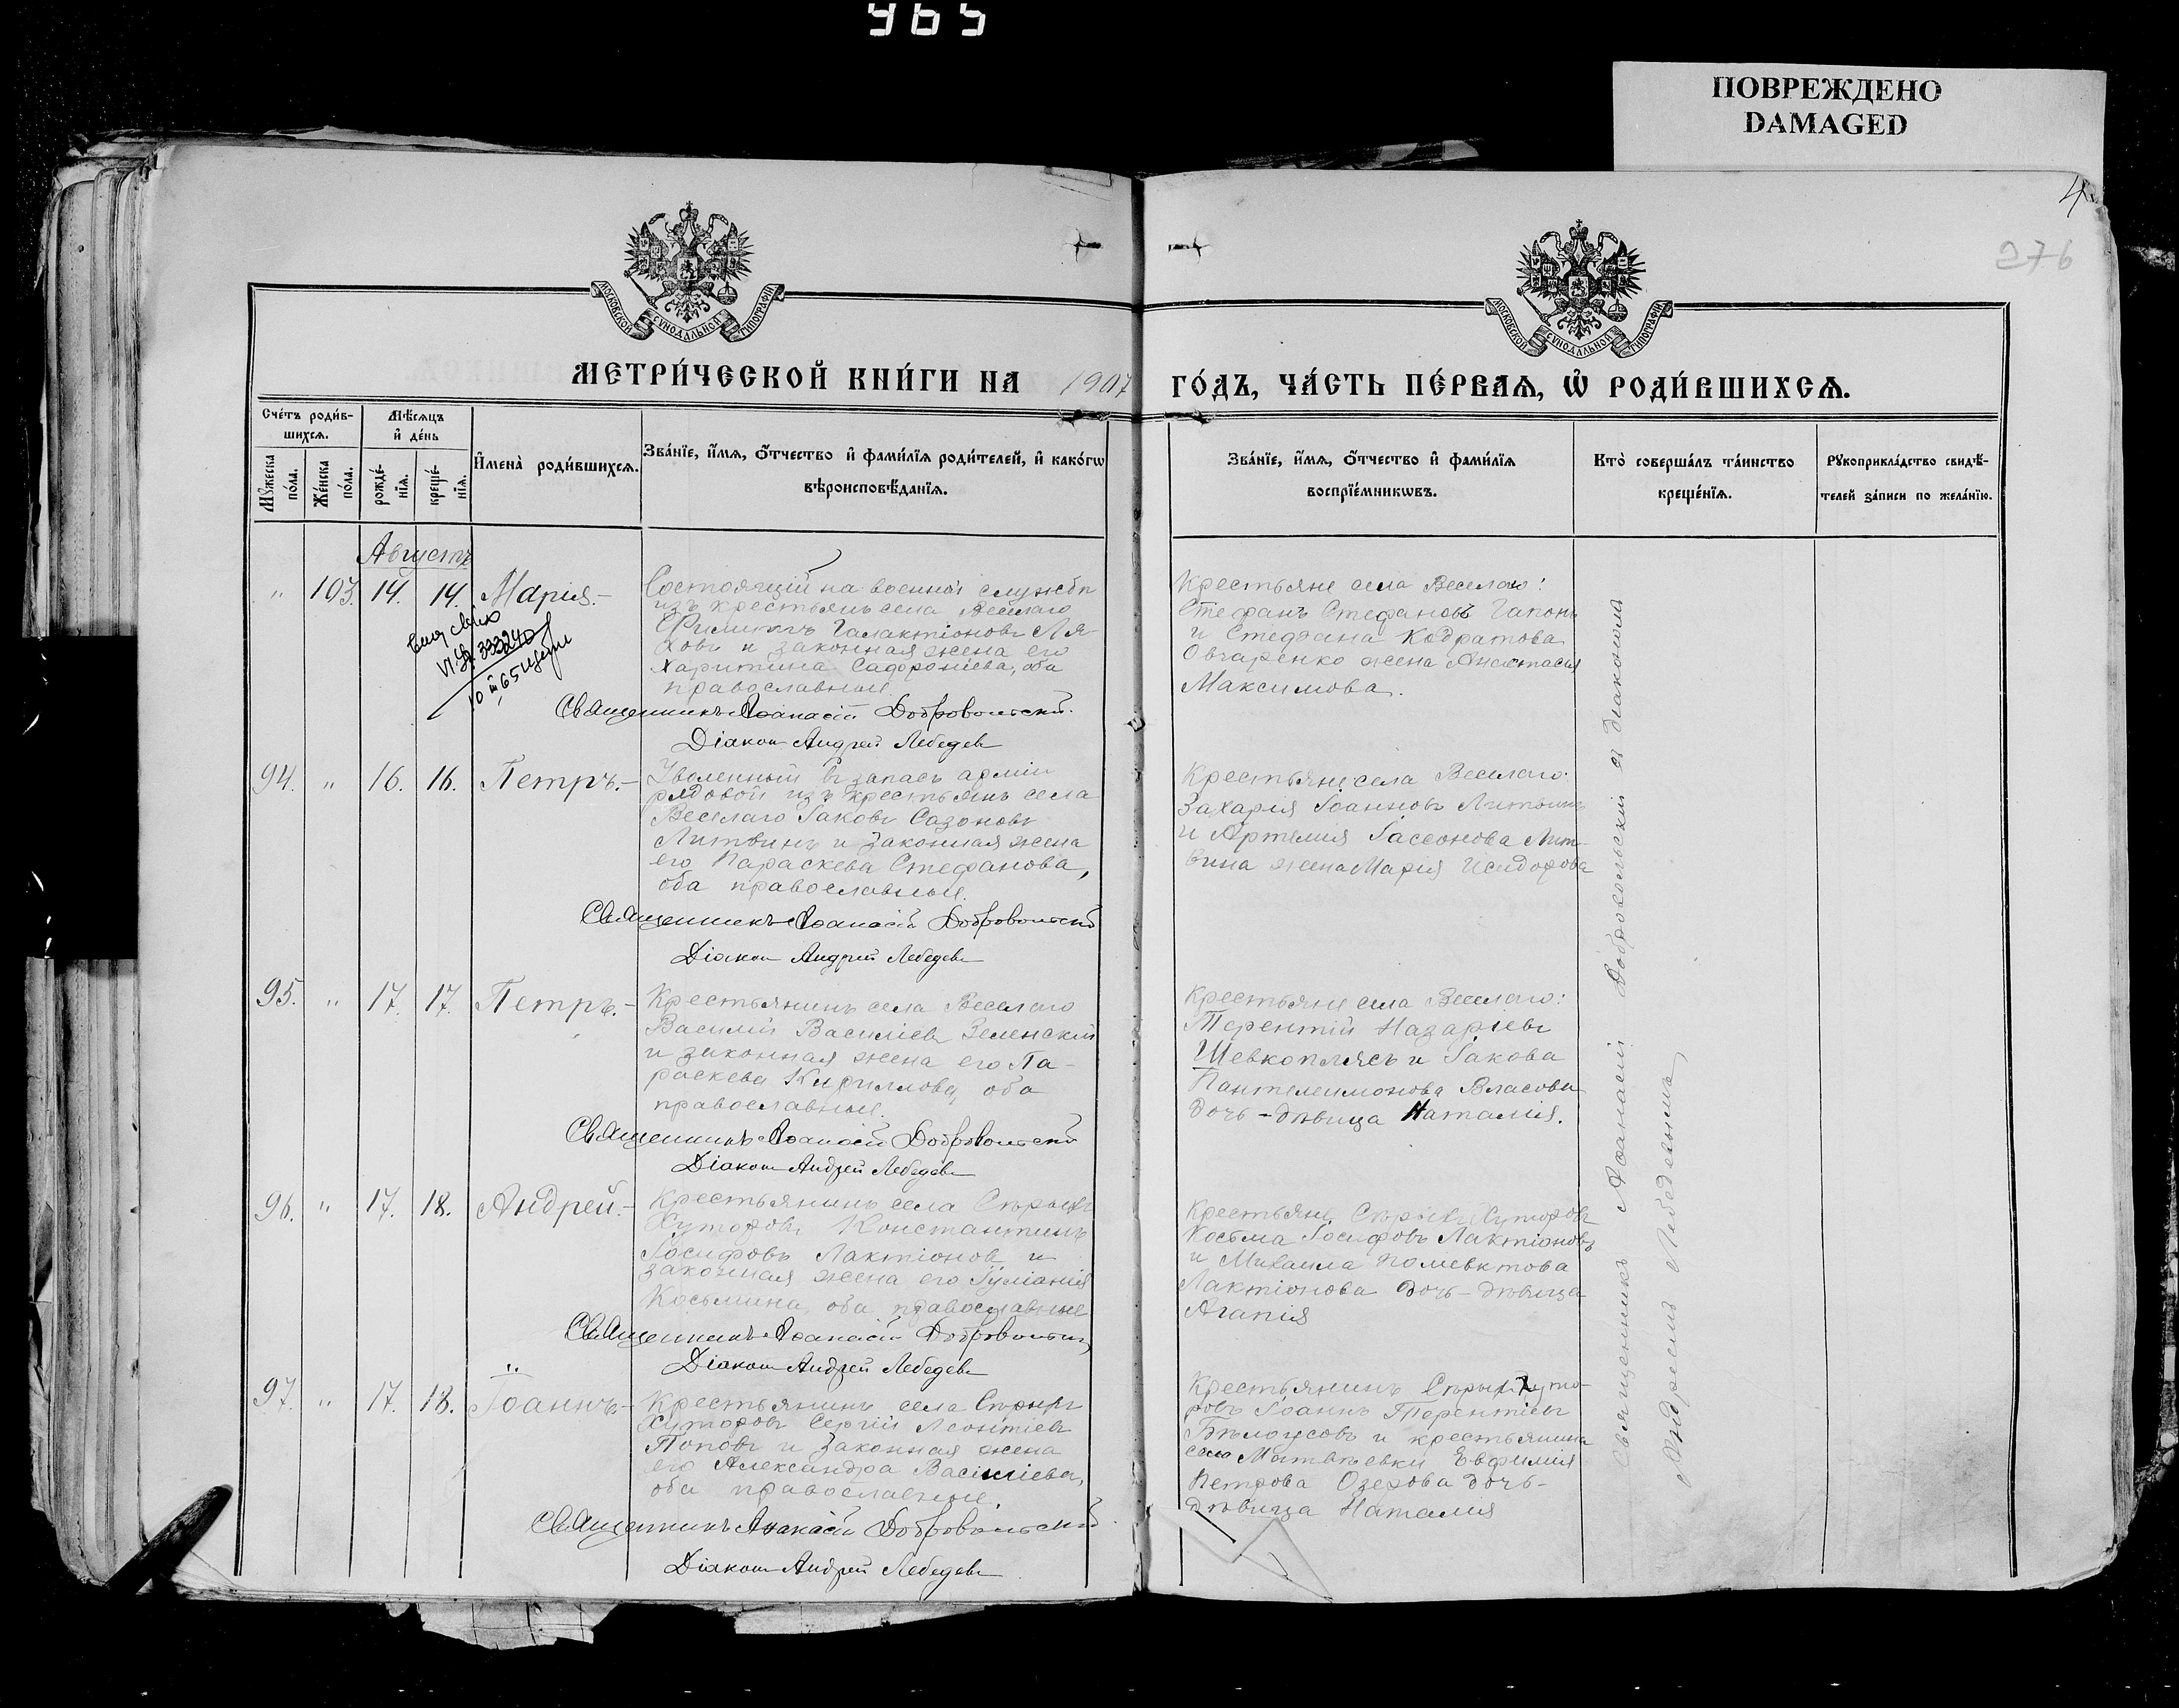 965
ПОВРЕЖДЕНО
DAMAGED
4
276
МОСКОВСКОЙ СѴНОДАЛЬНОЙ ТИПОГРАФІИ
МОСКОВСКОЙ СѴНОДАЛЬНОЙ ТИПОГРАФІИ
МЕТРИ́ЧЕСКОЙ КНИ́ГИ НА 1907 ГО́ДЪ, ЧА́СТЬ ПЕ́РВАѦ, Ѡ҆ РОДИ́ВШИХСѦ.
Сче́тъ роди́в-
шихсѧ.
Мꙋжеска по́ла.
Же́нска по́ла.
Мѣ́сѧцъ
и҆ де́нь
рожде́-
нїѧ.
креще́-
нїѧ.
И҆мена̀ роди́вшихсѧ.
Зва́нїе, и҆́мѧ, ѻ҆́тчество и҆ фами́лїѧ роди́телей, и҆ како́гѡ
вѣроисповѣ́данїѧ.
Зва́нїе, и҆́мѧ, ѻ҆́тчество и҆ фами́лїѧ
воспрїе́мникѡвъ.
Кто̀ соверша́лъ та́инство
креще́нїѧ.
Рꙋкоприкла́дство свидѣ́-
телей за́писи по жела́нїю.
Августъ
" 103. 14. 14. Марія.-
Состоящій на военной службѣ
изъ крестьянъ села Веселаго
Филиппъ Галактіоновъ Ля
ховъ и законная жена его
Харитина Сафроніева, оба
православные.
Священникъ Аѳанасій Добровольскій.
Діаконъ Андрей Лебедевъ
Крестьяне села Веселаго:
Стефанъ Стефановъ Гапонъ
и Стефана Кодратова
Овчаренко жена Анастасія
Максимова.
94. " 16. 16. Петръ.-
Уволенный въ запасъ арміи
рядовой изъ крестьянъ села
Веселаго Іаковъ Сазоновъ
Литвинъ и законная жена
его Параскева Стефанова,
оба православные.
Священникъ Аѳанасій Добровольскій
Діаконъ Андрей Лебедевъ
Крестьяне села Веселаго:
Захарія Іоанновъ Литвинъ
и Артемія Іассонова Лит-
вина жена Марія Исидорова
95. " 17. 17. Петръ.-
Крестьянинъ села Веселаго
Василій Василіевъ Зеленскій
и законная жена его Па-
раскева Кириллова, оба
православные.
Священникъ Аѳанасій Добровольскій
Діаконъ Андрей Лебедевъ
Крестьяне села Веселаго:
Терентій Назаріевъ
Шевкоплясъ и Іакова
Пантелеимонова Власова
дочь-дѣвица Наталія.
96. " 17. 18. Андрей.-
Крестьянинъ села Сѣрыхъ
Хуторовъ Константинъ
Іосифовъ Лактіоновъ и
законная жена его Іуліанія
Косьмина, оба православные
Священникъ Аѳанасій Добровольскій
Діаконъ Андрей Лебедевъ
Крестьяне Сѣрыхъ Хуторовъ
Косьма Іосифовъ Лактіоновъ
и Михаила
Лактіонова дочь-дѣвица
Агапія
97. " 17. 18. Іоаннъ.-
Крестьянинъ села Сѣрыхъ
Хуторовъ Сергій Леонтіевъ
Поповъ и законная жена
его Александра Василіева,
оба православные.
Священникъ Аѳанасій Добровольскій
Діаконъ Андрей Лебедевъ
Крестьянинъ Сѣрыхъ Хуто-
ровъ Іоаннъ Терентіевъ
Бѣлоусовъ и крестьянина
села Матвѣевки Евфимія
Петрова Озерова дочь-
дѣвица Наталія
Священникъ Аѳанасій Добровольскій съ діакономъ
Андреемъ Лебедевымъ